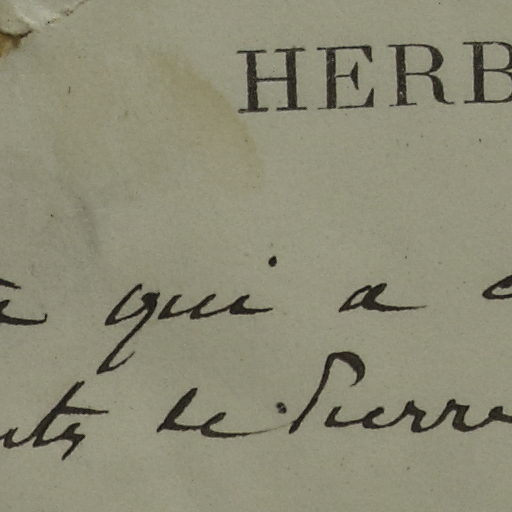 HERB
qui a
de Pierre